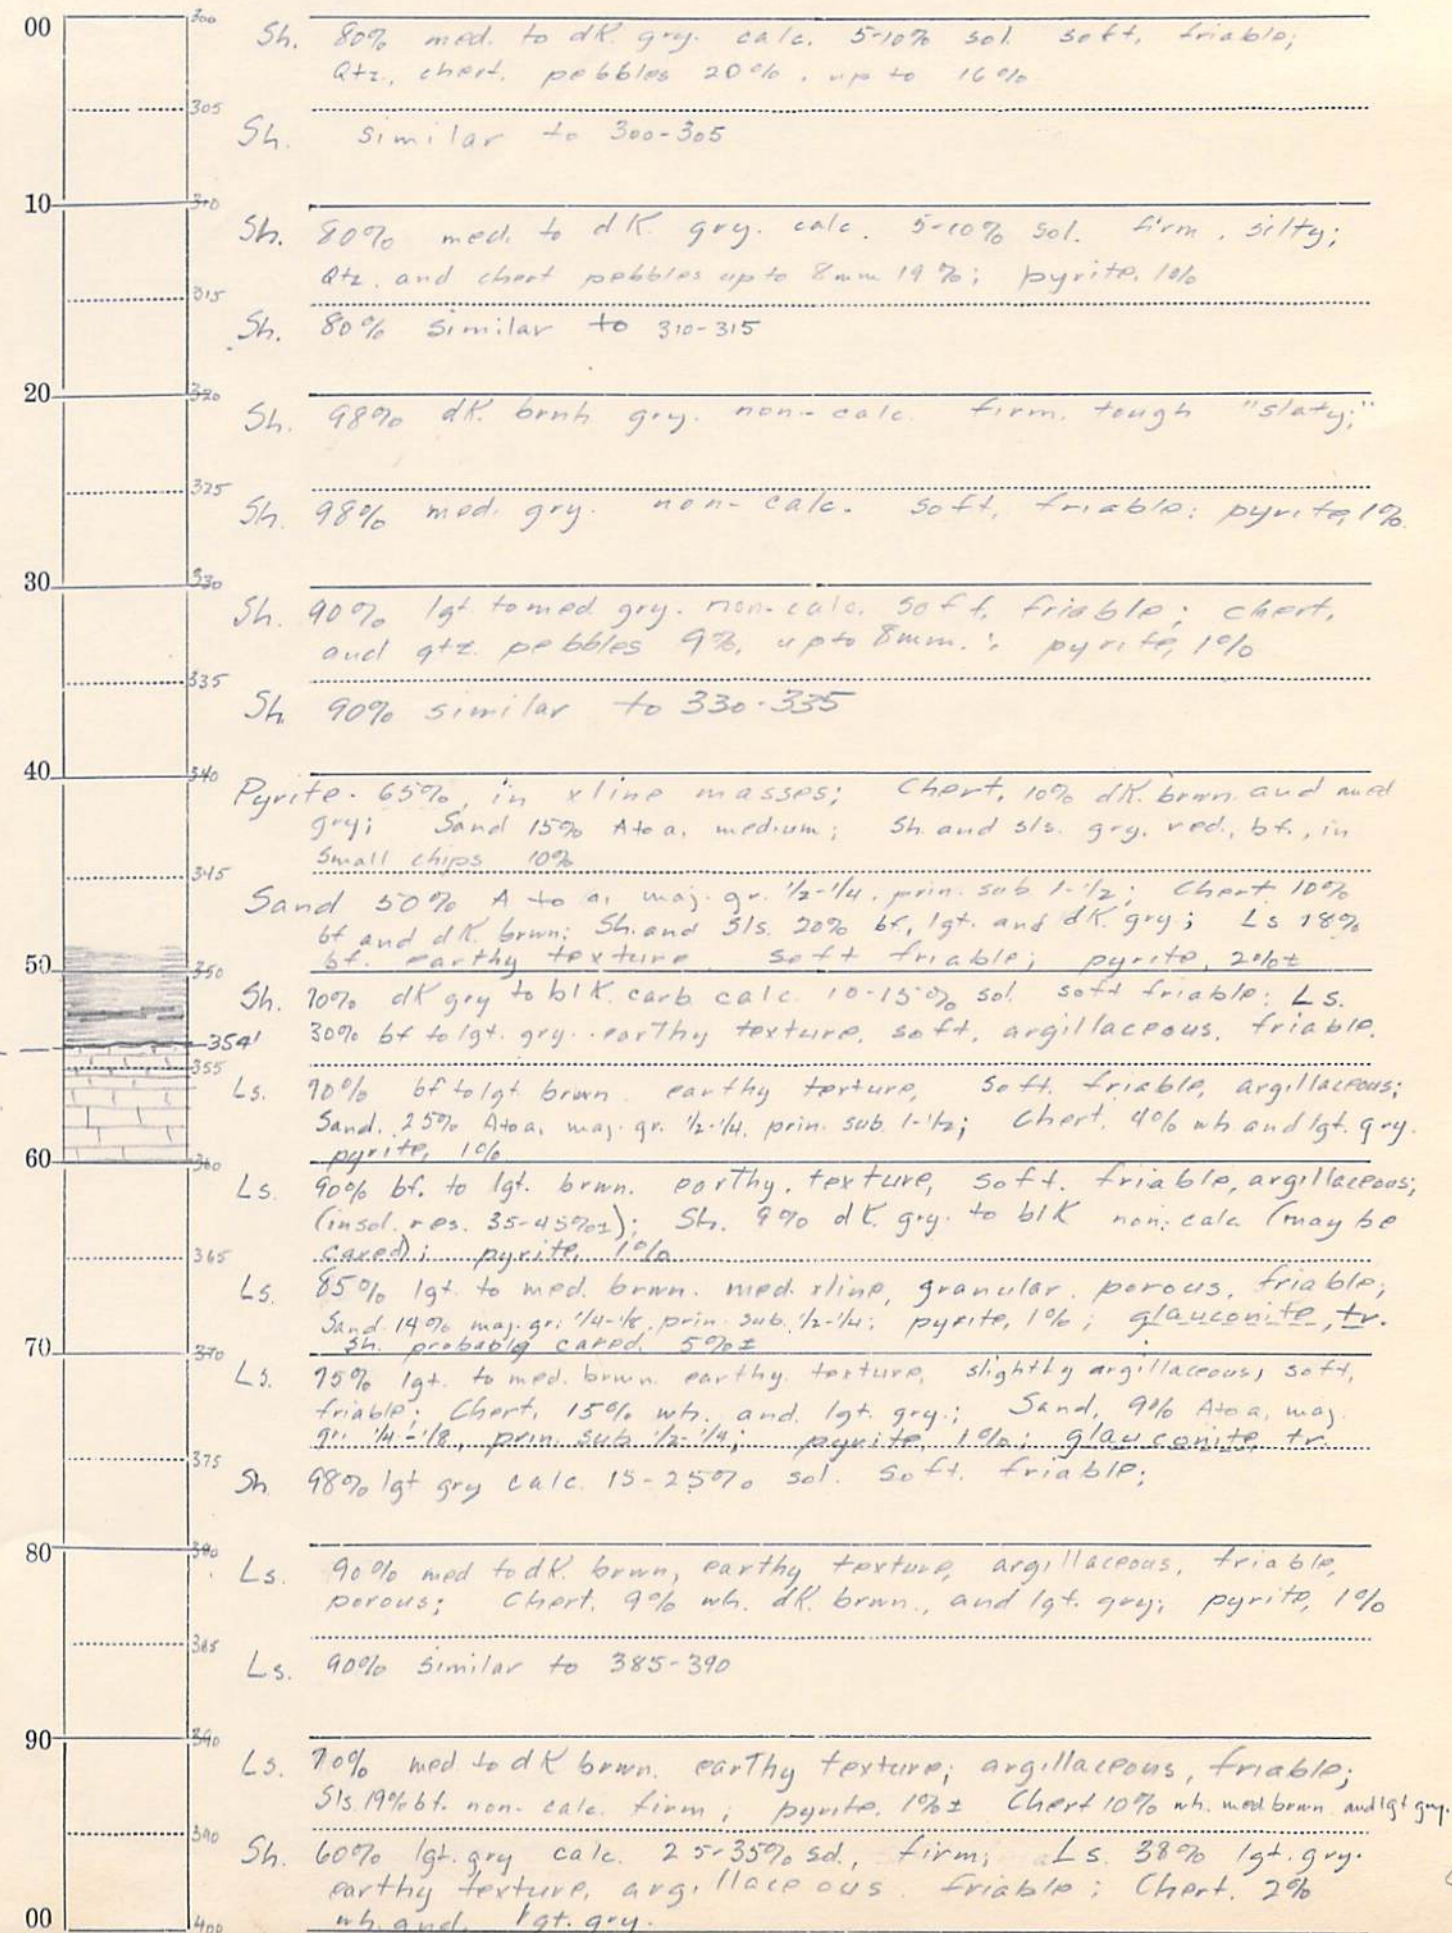 00 300
Sh. 80% med. to dK. gry. calc. 5-10% sol. soft, friable;
Qtz, chert, pebbles 20%, up to 16%
305
Sh. similar to 300-305
10 310
Sh. 80% med. to dK. gry. calc. 5-10% sol. firm, silty;
Qtz. and chert pebbles up to 8mm 19%; pyrite, 1%
315
Sh. 80% similar to 310-315
20 320
Sh. 98% dK. brnh gry. non-calc. firm. tough "slaty;"
325
Sh. 98% med. gry. non-calc. soft, friable; pyrite, 1%
30 330
Sh. 90% lgt. to med gry. non-calc. soft, friable; chert,
and qtz. pebbles 9%, up to 8mm.; pyrite, 1%
335
Sh 90% similar to 330-335
40 340
Pyrite. 65%, in xline masses; Chert, 10% dK. brwn. and med
gry; Sand 15% A to a, medium; Sh. and sls. gry, red, bf., in
small chips 10%
345
Sand 50% A to a, maj. gr. 1/2-1/4, prin. sub. 1-1/2; Chert 10%
bf and dK. brwn; Sh. and Sls. 20% bf, lgt. and dK. gry; Ls 18%
bf. earthy texture soft friable; pyrite, 2%±
50 350
Sh. 70% dK gry to blK. carb calc 10-15% sol. soft friable; Ls.
30% bf to lgt. gry. earthy texture, soft, argillaceous, friable.
354'
355
Ls. 70% bf to lgt. brwn. earthy texture, soft, friable, argillaceous;
Sand, 25% A to a, maj. gr. 1/2-1/4, prin. sub. 1-1/2; Chert, 4% wh and lgt. gry.
pyrite, 1%
60 360
Ls. 90% bf. to lgt. brwn. earthy, texture, soft, friable, argillaceous;
(insol. res. 35-45%±); Sh. 9% dK. gry. to blK non-calc (may be
caved); pyrite, 1%
365
Ls. 85% lgt. to med. brwn. med. xline, granular, porous, friable;
Sand 14% maj. gr. 1/4-1/8, prin. sub. 1/2-1/4; pyrite, 1%; glauconite, tr.
Sh. probably caved. 5%±
70 370
Ls. 75% lgt. to med. brwn. earthy texture, slightly argillaceous, soft,
friable; Chert, 15% wh. and lgt. gry.; Sand, 9% A to a, maj.
gr. 1/4-1/8, prin. sub 1/2-1/4; pyrite, 1%; glauconite, tr.
375
Sh 98% lgt gry calc. 15-25% sol. soft. friable;
80 380
Ls. 90% med to dK. brwn, earthy texture, argillaceous, friable,
porous; Chert. 9% wh. dK. brwn., and lgt. gry; pyrite, 1%
385
Ls. 90% similar to 385-390
90 390
Ls. 70% med to dK brwn. earthy texture; argillaceous, friable;
Sls 19% bf. non-calc. firm; pyrite, 1%± Chert 10% wh. med brwn. and lgt gry.
390
Sh. 60% lgt. gry calc. 25-35% sol., firm; Ls. 38% lgt. gry.
earthy texture, argillaceous friable; Chert. 2%
wh. and lgt. gry.
00 400